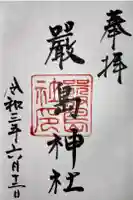 奉拝
嚴島神社
令和三年六月十三日